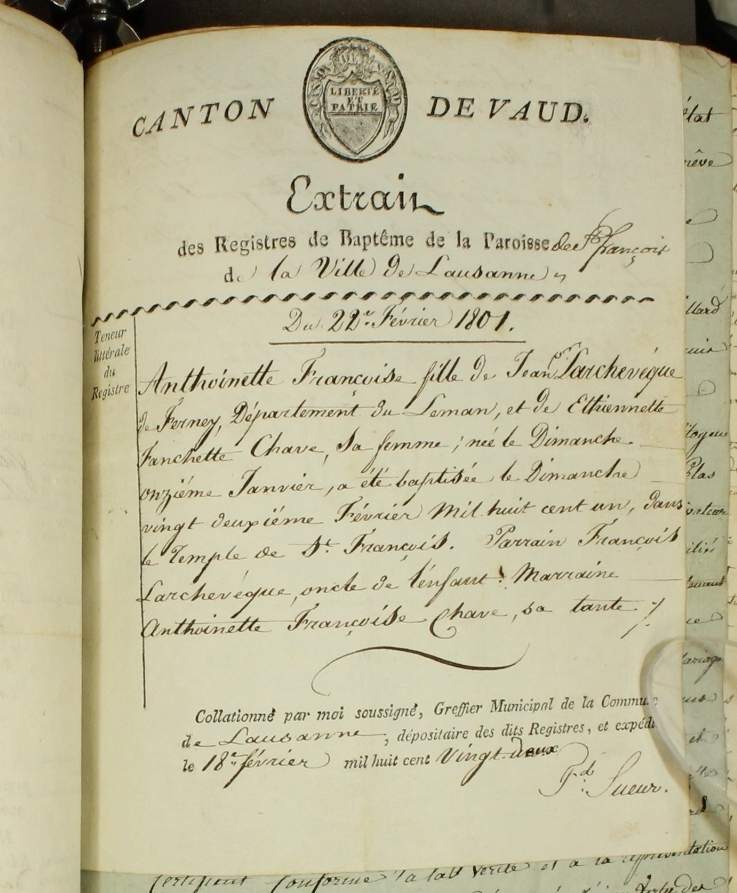 CANTON DE VAUD.
LIBERTÉ
ET
PATRIE
CANTON DE VAUD
Extrait
des Registres de Baptême de la Paroisse de St. François
de la Ville de Lausanne
Du 22e. Février 1801.
Teneur
littérale
du
Registre
Anthoinette Francoise fille de Jean Larchevéque
de Ferney, Département du Leman, et de Ethiennette
Fanchette Chave, sa femme; née le Dimanche
onziéme Janvier, a été baptisée le Dimanche
vingt deuxiéme Février mil huit cent un, dans
le Temple de St. François. Parrain François
Larchevéque, oncle de l'enfant. Marraine
Anthoinette Françoise Chave, sa tante
Collationné par moi soussigné, Greffier Municipal de la Commune
de Lausanne, dépositaire des dits Registres, et expédié
le 18e. février mil huit cent Vingt-deux
Sueur.